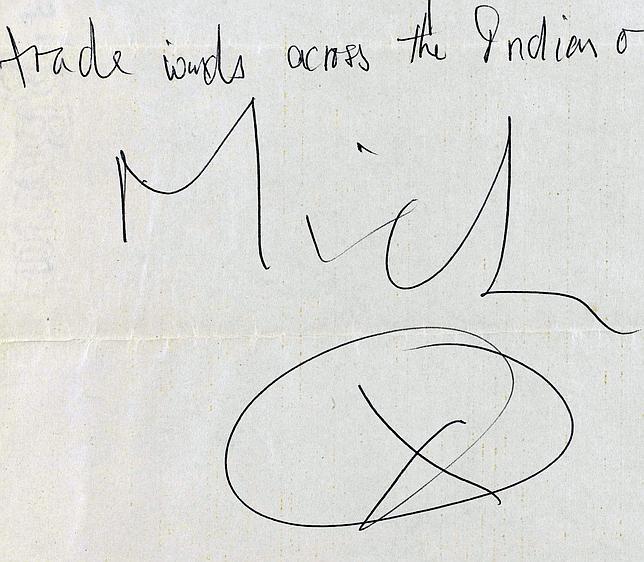 trade winds across the Indian o
Mick
X